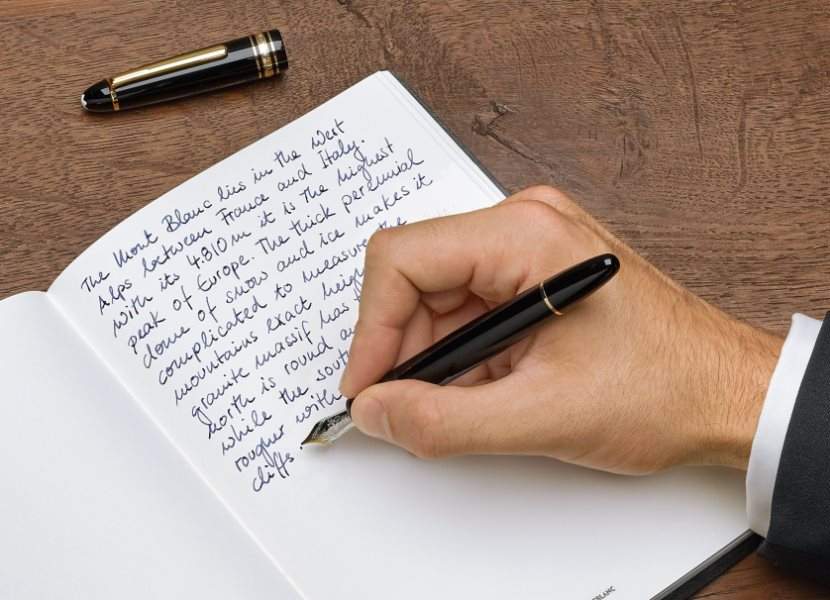 The Mont Blanc lies in the West
Alps between France and Italy.
With its 4.810 m it is the highest
peak of Europe. The thick perennial
dome of snow and ice makes it
complicated to measure the
mountains exact heigh
granite massif has
north is round a
while the sout
rougher with
cliffs.
BLANC